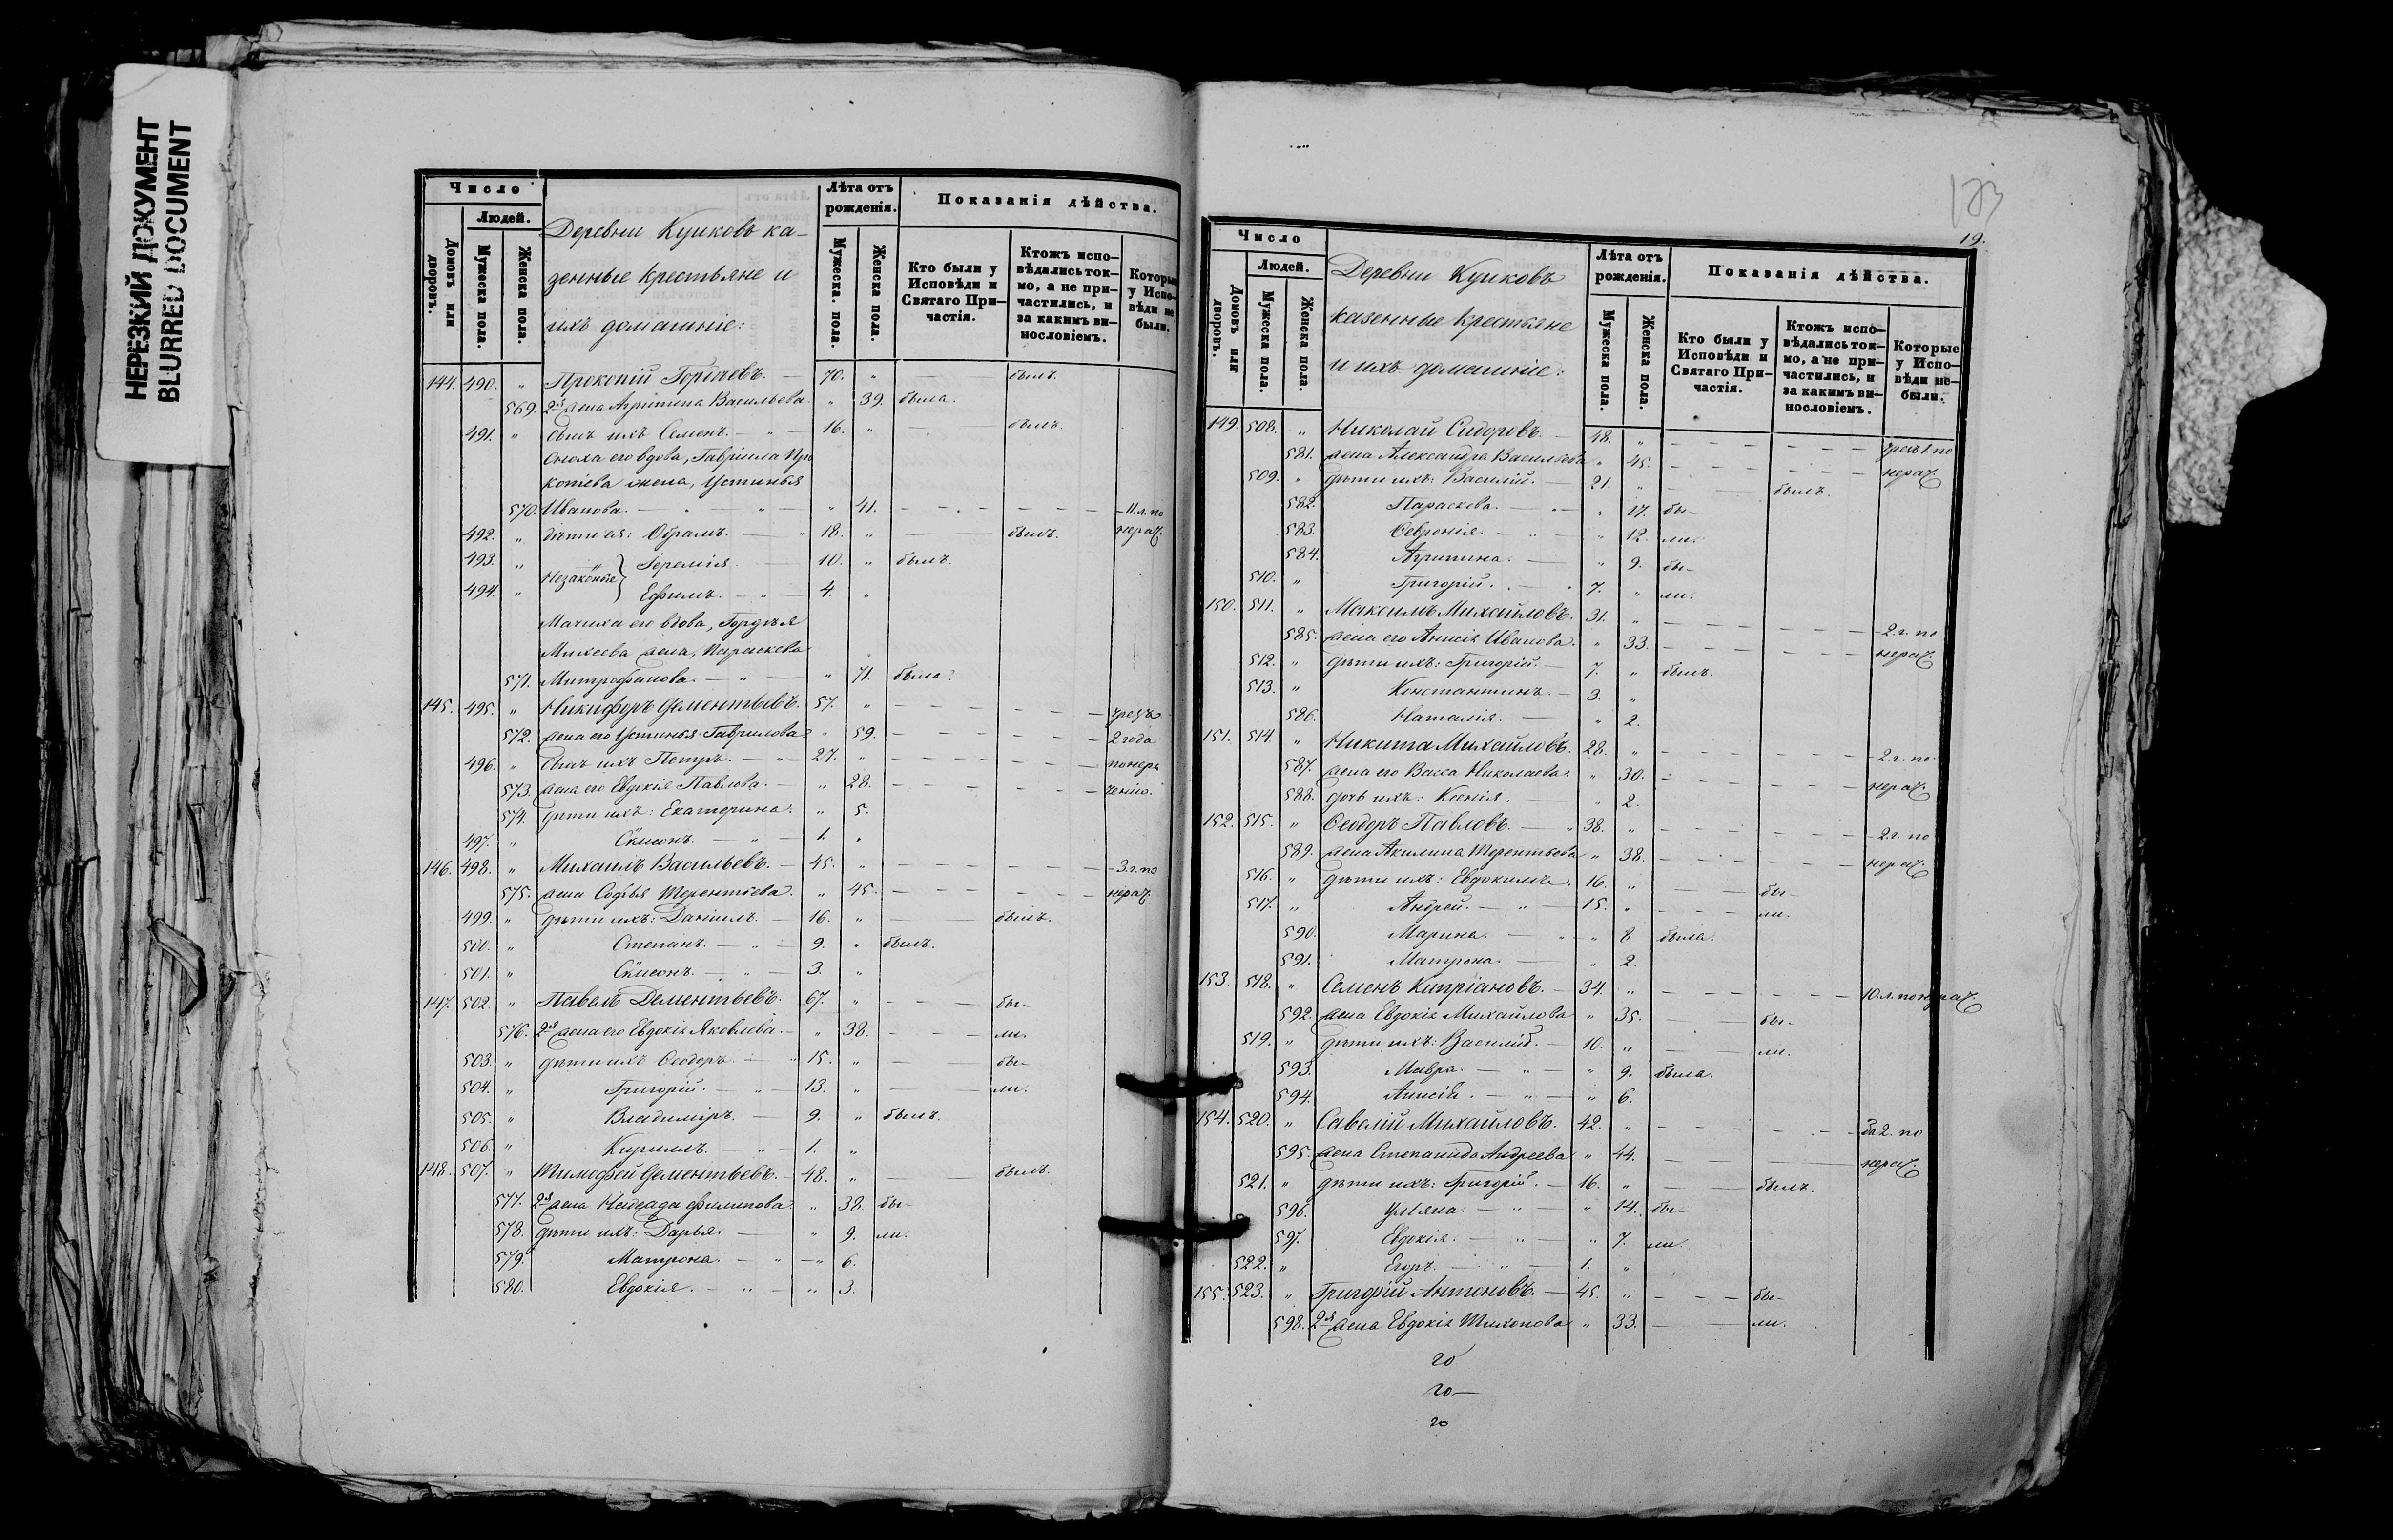 НЕРЕЗКИЙ ДОКУМЕНТ
BLURRED DOCUMENT
Число
Людей.
Домовъ или дворовъ.
Мужеска пола.
Женска пола.
Деревни Куиковъ ка-
зенные крестьяне и
ихъ домашніе:
Лѣта отъ рожденія.
Мужеска. пола.
Женска пола.
Показанія дѣйства.
Кто были у Исповѣди и Святаго При-частія.
Ктожъ испо-вѣдались ток-мо, а не при-частились, и за какимъ ви-нословіемъ.
Которые у Испо-вѣди не были.
144. 490. " Прокопій Гордѣевъ. — 70. " — былъ.
569. 2я жена Агрипина Васильева. " 39. была.
491. " сынъ ихъ Семенъ. — " — 16. " — былъ.
Сноха его вдова, Гавріила Про
копіева жена, Устинья
570. Иванова. — " 41. — — — — 11. л. по
492. " дѣти ея: Абрамъ. — 18. " — былъ. нерад.
493. " Іеремія. — 10. " былъ.
Незаконые
494. " Ефимъ. — " — 4. "
Мачиха его вдова, Гордѣя
Михеева жена, Параскева
571. Митрофанова. — " — " 71. была.
145. 495. " Никифоръ Дементьевъ. 57. " — — — — чрезъ
572. жена его Устинья Гаврилова " 59. — — — — 2 года
496. " сынъ ихъ Петръ. — " — 27. " — — — — понера
573. жена его Евдокія Павлова. — " 28. — — — — ченію.
574. дѣти ихъ: Екатерина. " 5.
497. " Сѵмеонъ. — " — 1. "
146. 498. " Михаилъ Васильевъ. — 45. " — — — — 3. г. по
575. жена Софья Терентіева. " 45. — — — — нерад.
499. " дѣти ихъ: Даніилъ. — 16. " — былъ.
500. " Степанъ. — " — 9. " былъ.
501. " Сѵмеонъ. — " — 3. "
147. 502. " Павелъ Дементьевъ. 67. " — — — бы-
576. 2я жена его Евдокія Яковлева. — " 38. — — — ли.
503. " дѣти ихъ Ѳеодоръ. — " 15. " — бы-
504. " Григорій. — " — 13. " — ли.
505. " Владиміръ. — 9. " былъ.
506. " Кирилъ. — " — 1. "
148. 507. " Тимофей Дементьевъ. — 48. " — былъ.
577. 2я жена Надежда Филипова. " 38. бы-
578. дѣти ихъ: Дарья. — " 9. ли.
579. Матрона. — " — " 6.
580. Евдокія. — " — " 3.
123
19.
Число
Людей.
Домовъ или дворовъ.
Мужеска пола.
Женска пола.
Деревни Куиковъ
казенные крестьяне
и ихъ домашніе:
Лѣта отъ рожденія.
Мужеска пола.
Женска пола.
Показанія дѣйства.
Кто были у Исповѣди и Святаго При-частія.
Ктожъ испо-вѣдались ток-мо, а не при-частились, и за какимъ ви-нословіемъ.
Которые у Испо-вѣди не-были.
149. 508. " Николай Сидоровъ. — 48. " — — — — чрезъ 1. по
581. жена Александра Васильева " 45. — — — — нерад.
509. " дѣти ихъ: Василій. — 21. " — былъ.
582. Параскева. — " — " 17. бы-
583. Февронія. — " — " 12. ли.
584. Агрипина. — " 9. бы-
510. " Григорій. — 7. " ли.
150. 511. " Максимъ Михайловъ. 31. " — — — — 2. г. по
585. жена его Анисія Иванова. " 33. — — — — нерад.
512. " дѣти ихъ: Григорій. — 7. " былъ.
513. " Константинъ. — 3. "
586. Наталія. — " 2.
151. 514. " Никита Михайловъ. 28. " — — — — 2. г. по
587. жена его Васса Николаева. " 30. — — — — нерад.
588. дочь ихъ: Ксенія. — " 2.
152. 515. " Ѳеодоръ Павловъ. — " 38. " — — — — 2. г. по
589. жена Акилина Терентьева " 38. — — — — нерад.
516. " дѣти ихъ: Евдокимъ. 16. " — — бы-
517. " Андрей. — " — 15. " — — — ли.
590. Марина. — " — " 8 была.
591. Матрона. — " 2.
153. 518. " Семенъ Кипріановъ. — 34. " — — — — 10. л. по нерад.
592. жена Евдокія Михайлова " 35. — — бы-
519. " дѣти ихъ: Василій. — 10. " — ли.
593. Мавра. — " — " 9. была.
594. Анисія. — " — " 6.
154. 520. " Савелій Михайловъ. 42. " — — — — За 2. по
595. жена Степанида Андреева " 44. — — нерад.
521. " дѣти ихъ: Григорій. — 16. " — былъ.
596. Ульяна. — " — " 14. бы-
597. Евдокія. — " — " 7. ли.
522. " Егоръ. — " — 1. "
155. 523. " Григорій Антоновъ. — 45. " — — — бы-
598. 2я жена Евдокія Тихонова " 33. — — ли.
20
20—
20